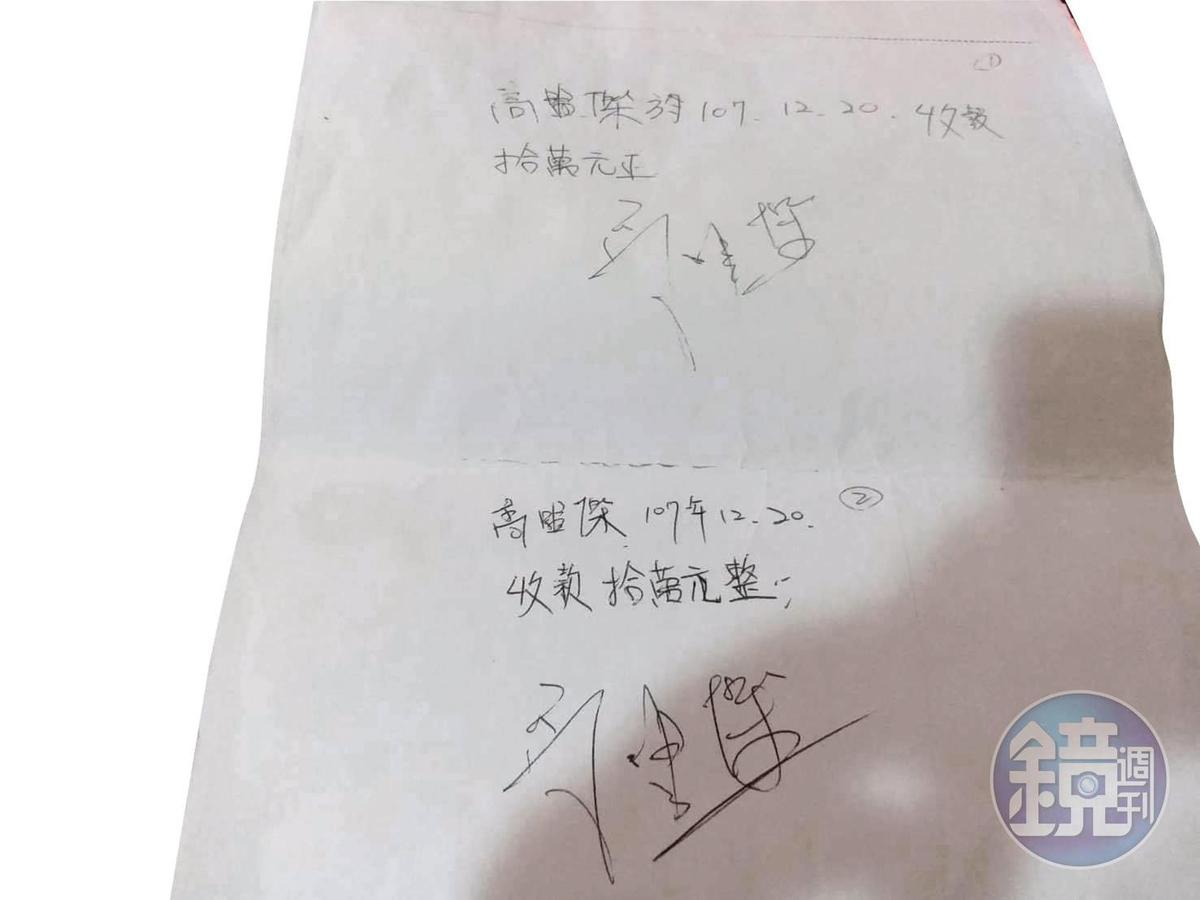 ①
高盟傑於107.12.20.收款
拾萬元正
②
高盟傑 107年12.20.
收款拾萬元整;
鏡週刊